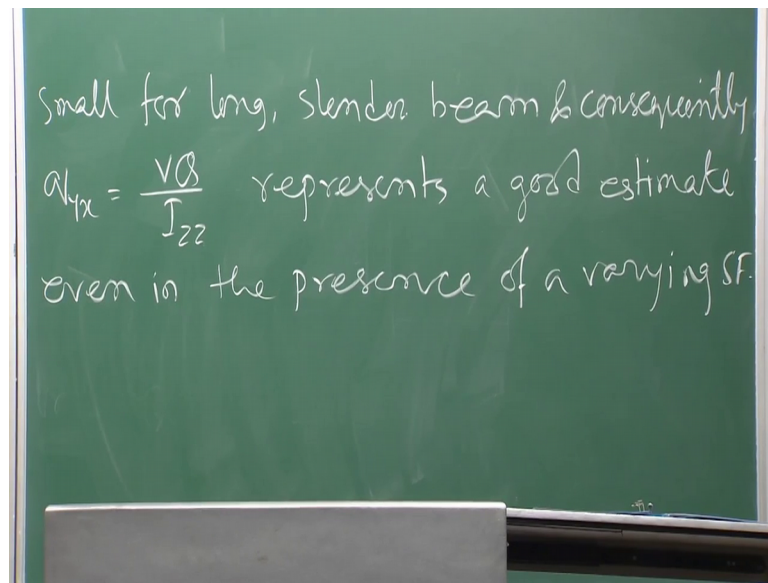 Small for long, slender beam & consequently
q_yx = VQ / I_zz represents a good estimate
even in the presence of a varying SF.